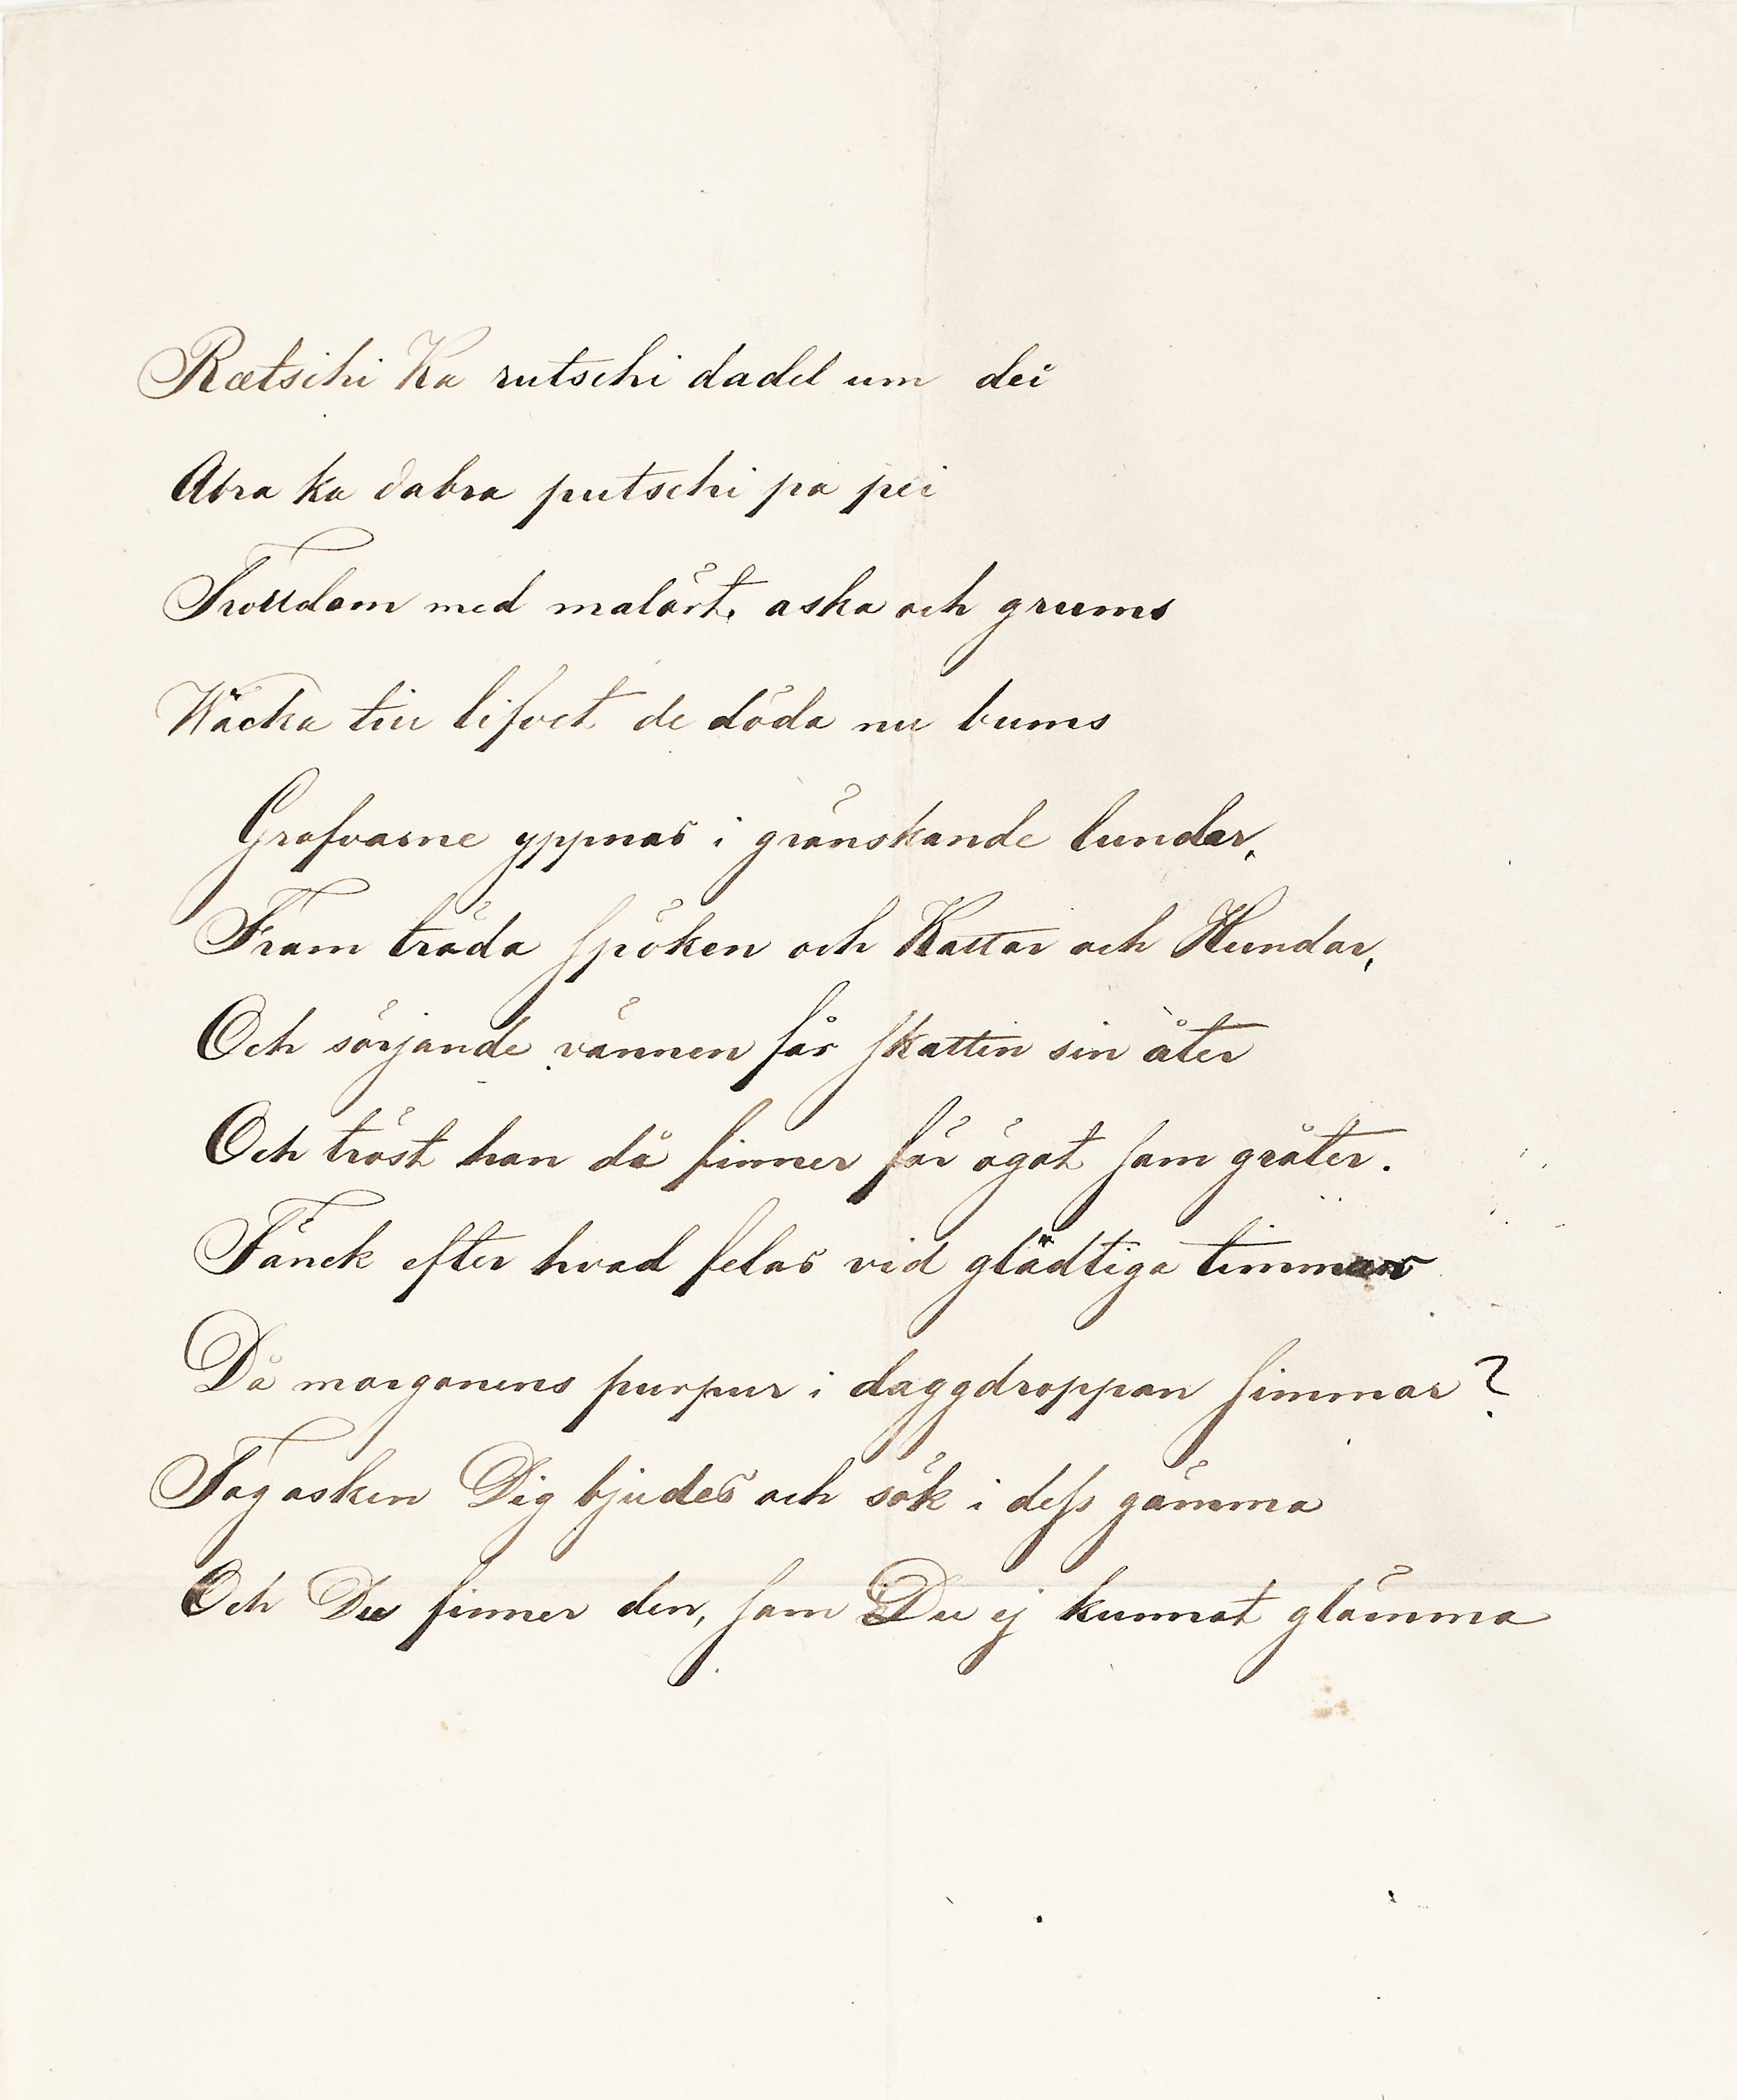 Rætsihi Ka rutschi dadel um dei
Abra ka dabra putschi pa pei
Trolldom med malört, aska och grums
Wäcka till lifvet de döda nu bums
Grafvarne yppnas i grönskande lundar,
Fram träda spöken och Kattor och Hundar,
Och sörjande vännen får skatten sin åter
Och tröst han då finner för ögat som gråter.
Tänck efter hvad felas vid glädtiga timmar
Då morgonens purpur i daggdroppan simmar?
Tag asken Dig bjudes och sök i dess gömma
Och Du finner den, som Du ej kunnat glömma